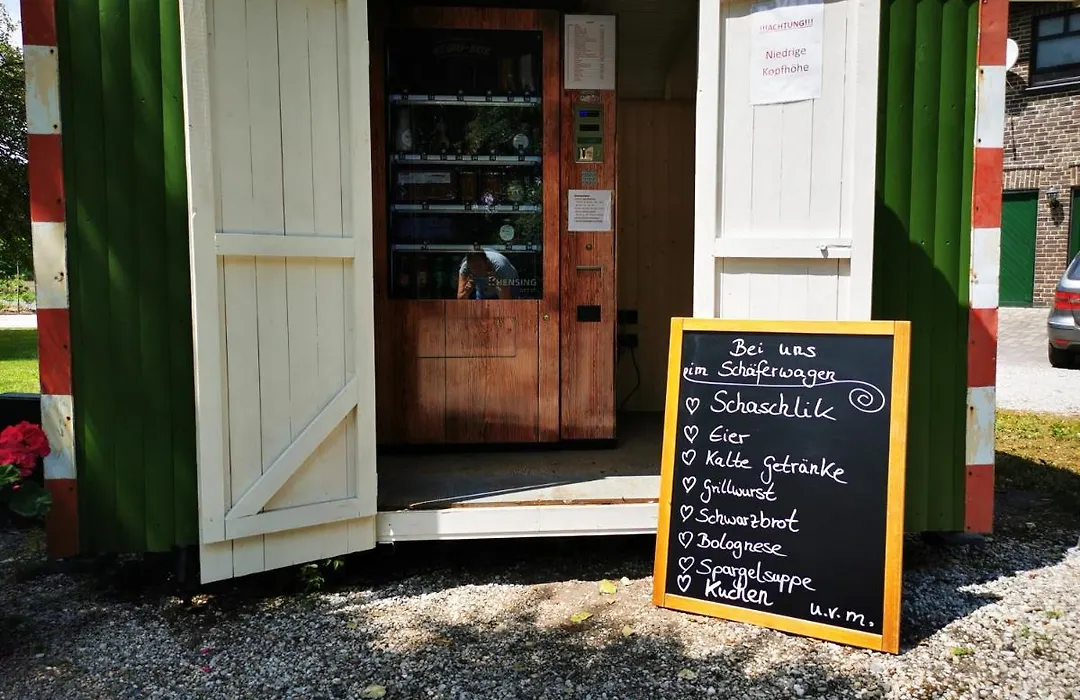 !!!ACHTUNG!!!
Niedrige
Kopfhöhe
HENSING
Bei uns
im Schäferwagen
♡ Schaschlik
♡ Eier
♡ Kalte Getränke
♡ Grillwurst
♡ Schwarzbrot
♡ Bolognese
♡ Spargelsuppe
♡ Kuchen
u.v.m.